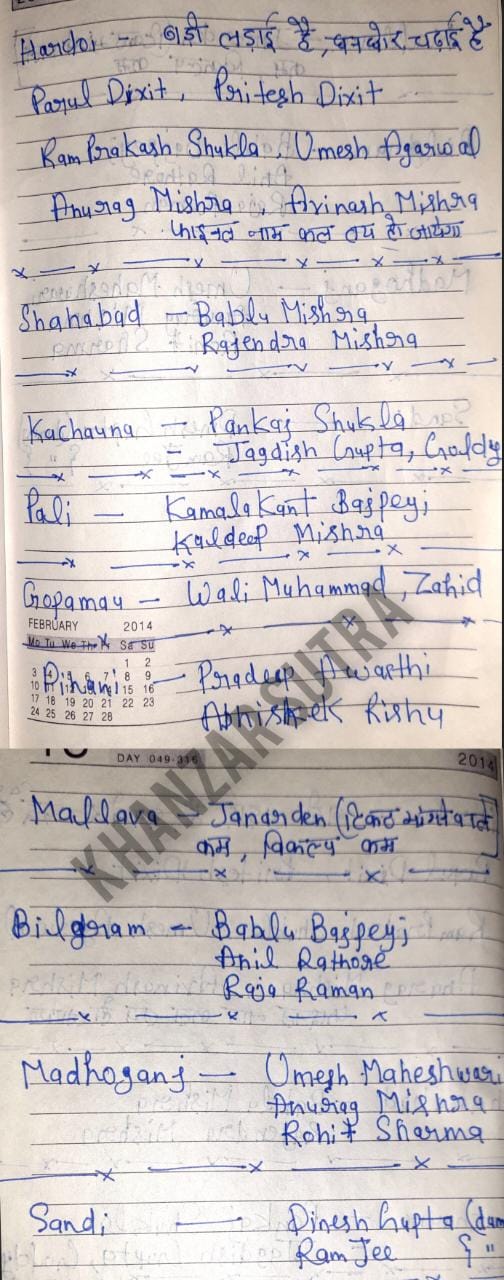 Hardoi - बड़ी लड़ाई है, घनघोर चढ़ाई है
Parul Dixit, Pritesh Dixit
Ram Prakash Shukla, Umesh Agarwal
Anurag Mishra, Avinash Mishra
फाइनल नाम कल तय हो जायेगा
Shahabad - Bablu Mishra
Rajendra Mishra
Kachauna - Pankaj Shukla
- Jagdish Gupta, Guldy
Pali - Kamala Kant Bajpeyi
Kuldeep Mishra
Gopamau - Wali Muhammad, Zahid
FEBRUARY 2014
Mo Tu We Th Fr Sa Su
1 2
3 4 5 6 7 8 9
10 11 15 16
17 18 19 20 21 22 23
24 25 26 27 28
Pihani - Pradeep Awasthi
Abhishek Rishu
KHANZARSUTRA
DAY 049-316 2014
Mallava - Janarden (टिकट मांगने वाले
कम, विकल्प कम
Bilgram - Bablu Bajpeyi
Anil Rathore
Raja Raman
Madhoganj - Umesh Maheshwari
Anurag Mishra
Rohit Sharma
Sandi - Dinesh Gupta (dam
Ram Jee { "